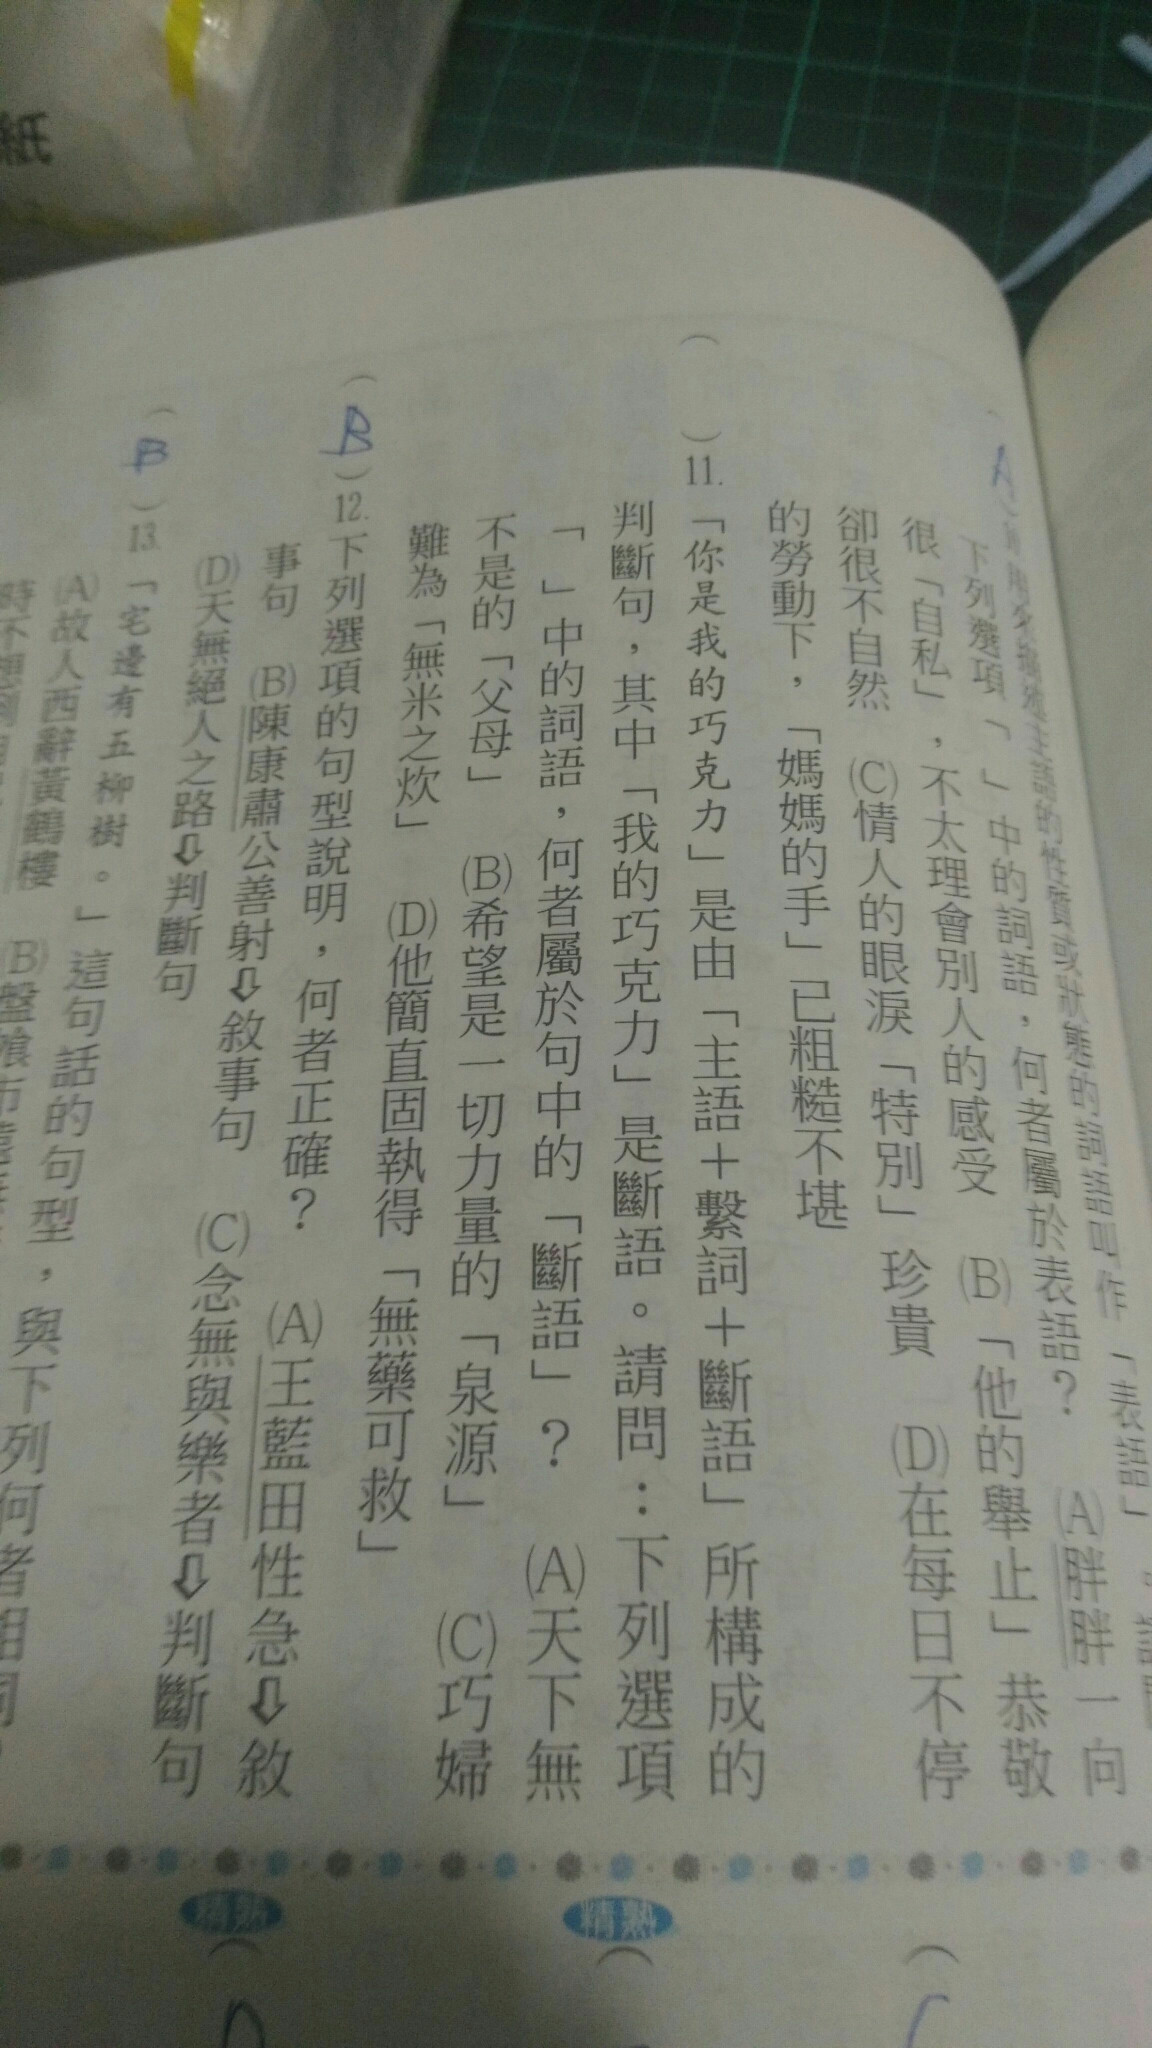 語的性質或狀態的詞語叫作「表語」。
下列選項「　」中的詞語，何者屬於表語？　(A)胖胖一向
很「自私」，不太理會別人的感受　(B)「他的舉止」恭敬
卻很不自然　(C)情人的眼淚「特別」珍貴　(D)在每日不停
的勞動下，「媽媽的手」已粗糙不堪
(　)11.「你是我的巧克力」是由「主語＋繫詞＋斷語」所構成的
判斷句，其中「我的巧克力」是斷語。請問：下列選項
「　」中的詞語，何者屬於句中的「斷語」？　(A)天下無
不是的「父母」　(B)希望是一切力量的「泉源」　(C)巧婦
難為「無米之炊」　(D)他簡直固執得「無藥可救」
(B)12.下列選項的句型說明，何者正確？　(A)王藍田性急⇨敘
事句　(B)陳康肅公善射⇨敘事句　(C)念無與樂者⇨判斷句
(D)天無絕人之路⇨判斷句
(B)13.「宅邊有五柳樹。」這句話的句型，與下列何者相同？
(A)故人西辭黃鶴樓　(B)盤飧市遠
精熟
精熟
紙